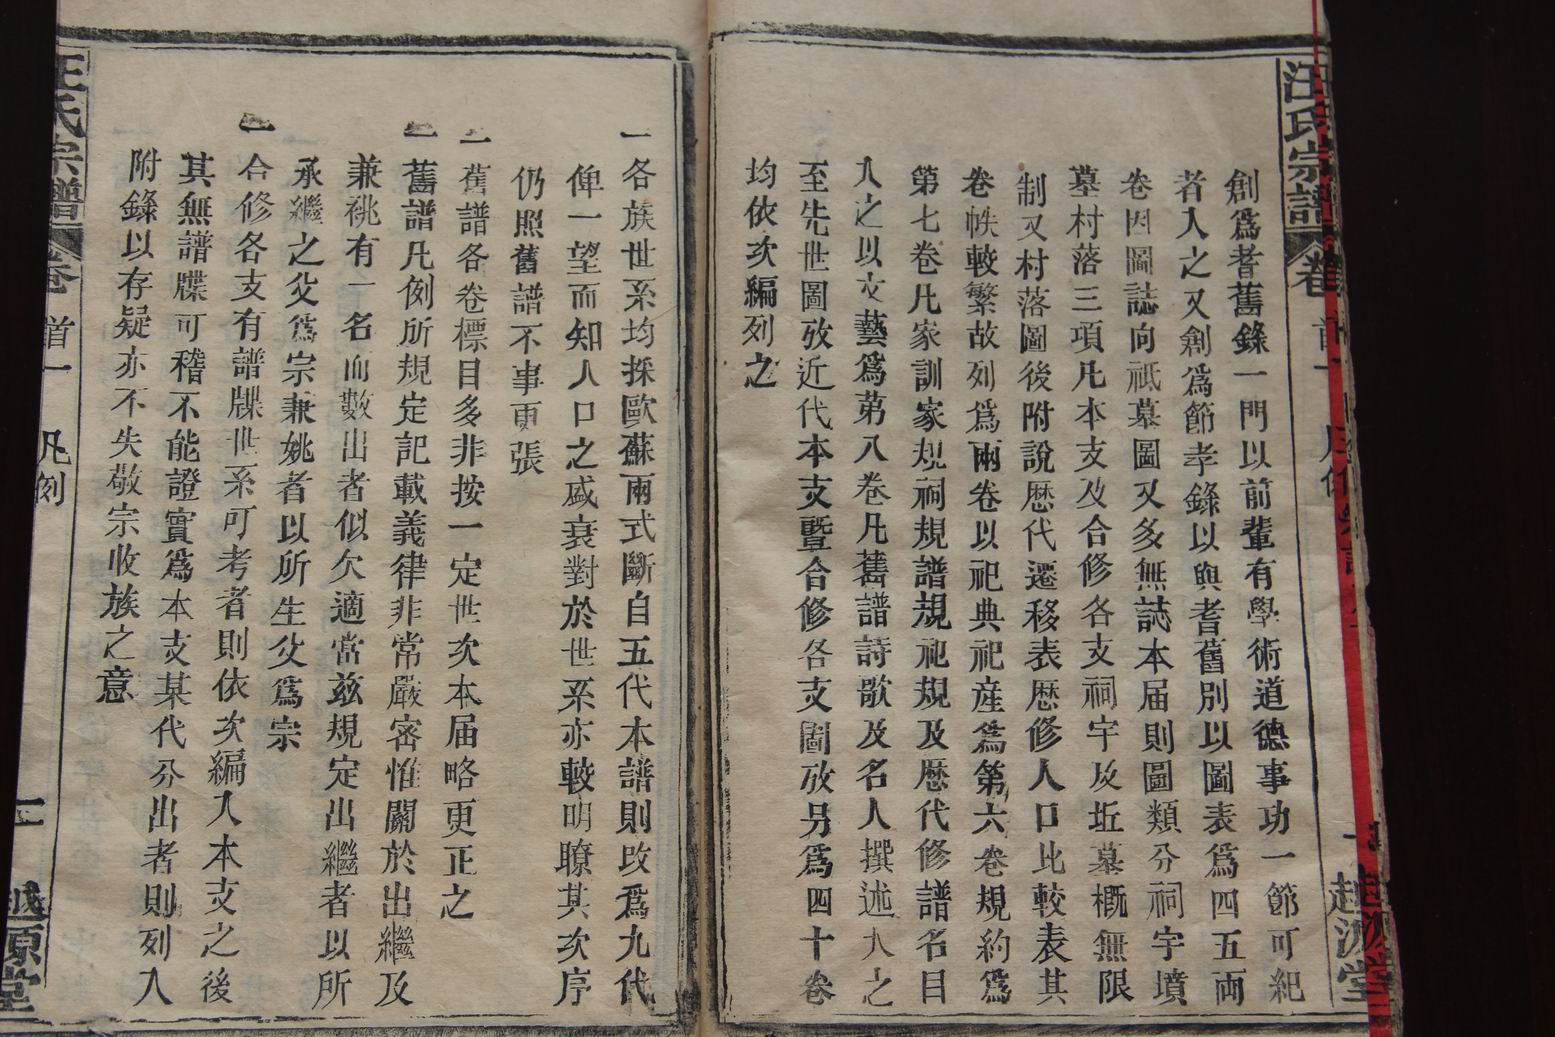 汪氏宗譜
卷首一
凡例
創爲耆舊錄一門以前輩有學術道德事功一節可紀
者入之又創爲節孝錄以與耆舊別以圖表爲四五兩
卷因圖誌向祇墓圖又多無誌本届則圖類分祠宇墳
墓村落三項凡本支及合修各支祠宇及坵墓概無限
制又村落圖後附說歷代遷移表歷修人口比較表其
卷帙較繁故列爲兩卷以祀典祀産爲第六卷規約爲
第七卷凡家訓家規祠規譜規祀規及歷代修譜名目
入之以文藝爲第八卷凡舊譜詩歌及名人撰述入之
至先世圖攷近代本支暨合修各支圖攷另爲四十卷
均依次編列之
一各族世系均採歐蘇兩式斷自五代本譜則改爲九代
俾一望而知人口之盛衰對於世系亦較明瞭其次序
仍照舊譜不事更張
一舊譜各卷標目多非按一定世次本届略更正之
一舊譜凡例所規定記載義律非常嚴密惟關於出繼及
兼祧有一名而數出者似欠適當兹規定出繼者以所
承繼之父爲宗兼姚者以所生父爲宗
一合修各支有譜牒世系可考者則依次編入本支之後
其無譜牒可稽不能證實爲本支某代分出者則列入
附錄以存疑亦不失敬宗收族之意
汪氏宗譜
卷首一
凡例
越原堂